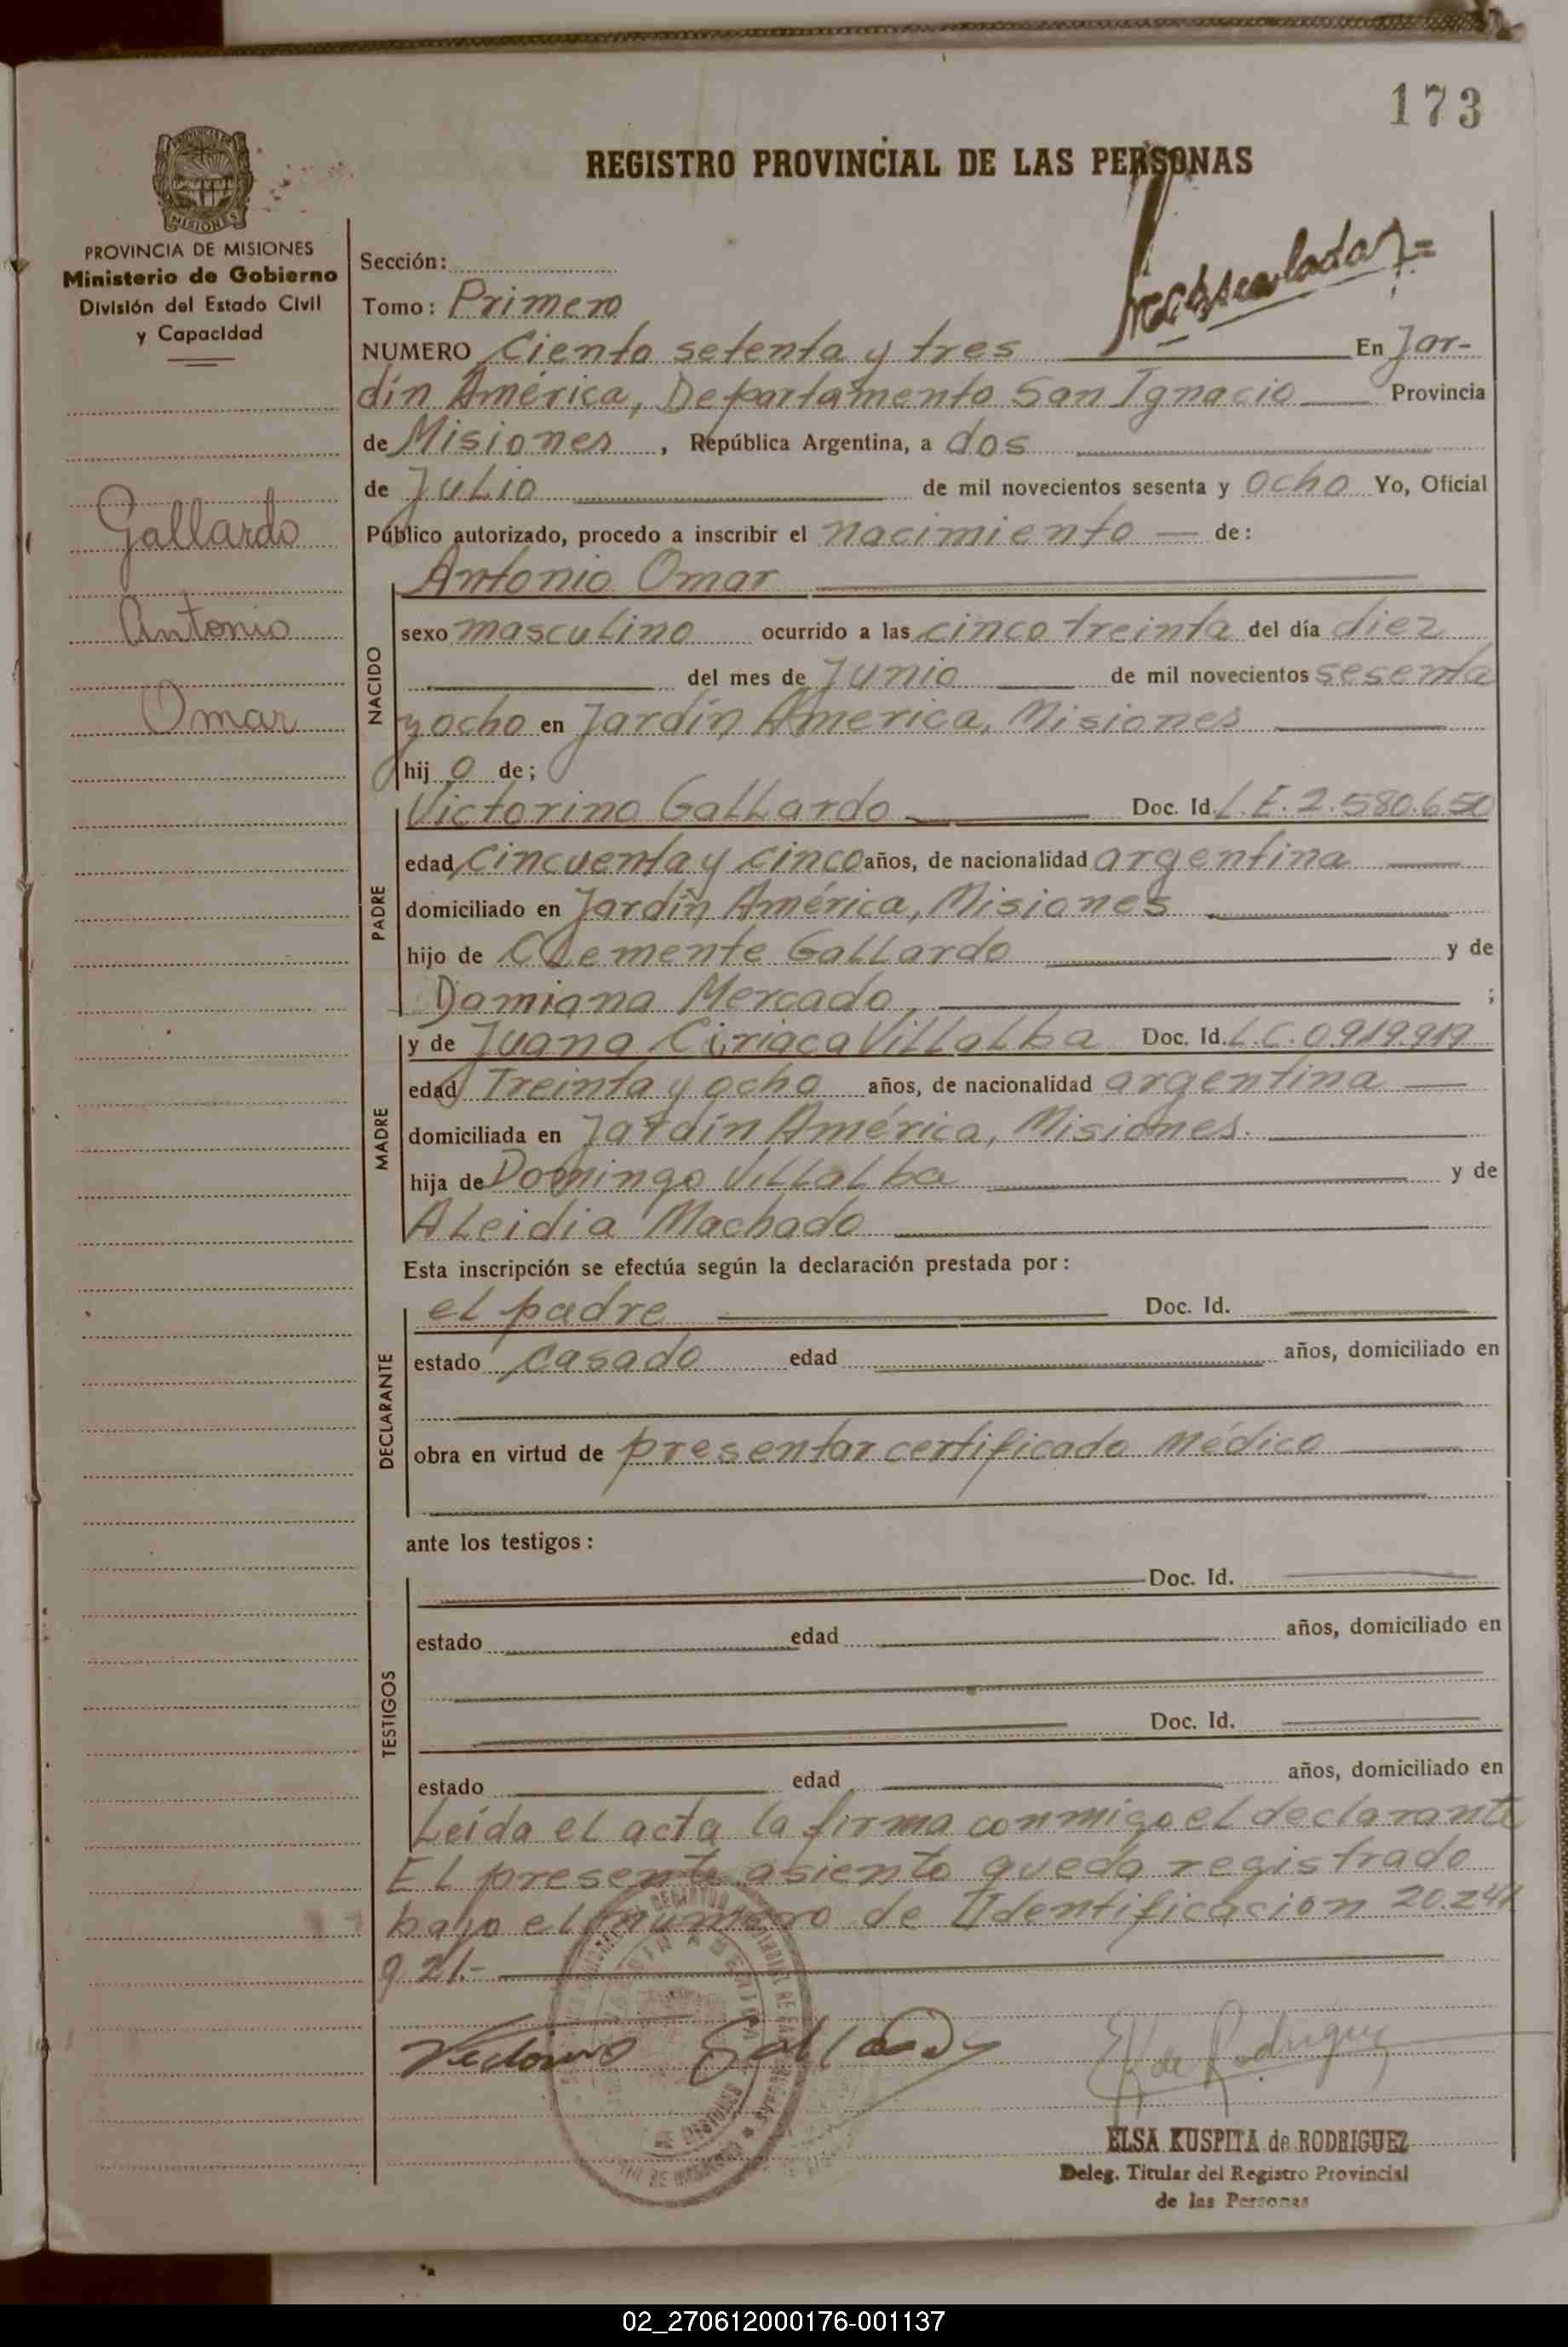 173
REGISTRO PROVINCIAL DE LAS PERSONAS
PROVINCIA DE MISIONES
Ministerio de Gobierno
División del Estado Civil
y Capacidad
Gallardo
Antonio
Omar
Sección:
Tomo: Primero
NUMERO Ciento setenta y tres En Jar-
dín América, Departamento San Ignacio Provincia
de Misiones, República Argentina, a dos
de Julio de mil novecientos sesenta y ocho Yo, Oficial
Público autorizado, procedo a inscribir el nacimiento de:
NACIDO
Antonio Omar
sexo masculino ocurrido a las cinco treinta del día diez
del mes de Junio de mil novecientos sesenta
y ocho en Jardín América, Misiones
hijo de;
PADRE
Victorino Gallardo Doc. Id. L.E. 2.580.650
edad cincuenta y cinco años, de nacionalidad argentina
domiciliado en Jardín América, Misiones
hijo de Clemente Gallardo y de
Damiana Mercado ;
MADRE
y de Juana Ciriaca Villalba Doc. Id. L.C. 0.919.919
edad Treinta y ocho años, de nacionalidad argentina
domiciliada en Jardín América, Misiones.
hija de Domingo Villalba y de
Aleidia Machado
Esta inscripción se efectúa según la declaración prestada por:
DECLARANTE
el padre Doc. Id.
estado casado edad años, domiciliado en
obra en virtud de presentar certificado médico
ante los testigos:
TESTIGOS
Doc. Id.
estado edad años, domiciliado en
Doc. Id.
estado edad años, domiciliado en
Leída el acta la firma conmigo el declarante
El presente asiento queda registrado
bajo el número de Identificación 20.241
921.-
Victorino Gallardo
E K de Rodriguez
ELSA KUSPITA de RODRIGUEZ
Deleg. Titular del Registro Provincial
de las Personas
02_270612000176-001137